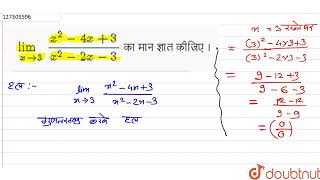 127303596
lim x→3 x² - 4x + 3 / x² - 2x - 3 का मान ज्ञात कीजिए ।
हल :-
lim x→3 x² - 4x + 3 / x² - 2x - 3
गुणनखण्ड करके हल
x = 3 रखने पर
= (3)² - 4×3 + 3 / (3)² - 2×3 - 3
= 9 - 12 + 3 / 9 - 6 - 3
= 12 - 12 / 9 - 9
= (0/0)
doubtnut